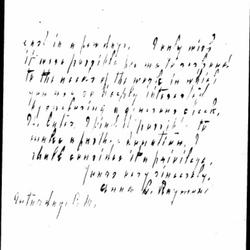 end in a few days. I only wish
it were possible for me to respond
to the needs of the work in which
you are so deeply interested
by a generous check.
later, I find it possible to
make a further donation, I
shall consider it a privilege.
Yours very sincerely,
Anna
Saturday P.M.